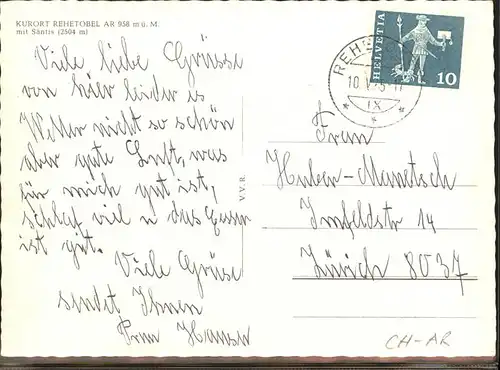 KURORT REHETOBEL AR 958 m ü. M.
mit Säntis (2504 m)
Viele liebe Grüsse
von hier leider is
Wetter nicht so schön
aber gute Luft, was
für mich gut ist,
schlaf viel u das Essen
ist gut.
Viele Grüsse
sendet Ihnen
Frau
V.V.R.
HELVETIA
10
REHETOBEL
10.V.
IX
Frau
Huber-Mametsch
Imfeldstr 14
Zürich 8037
CH-AR